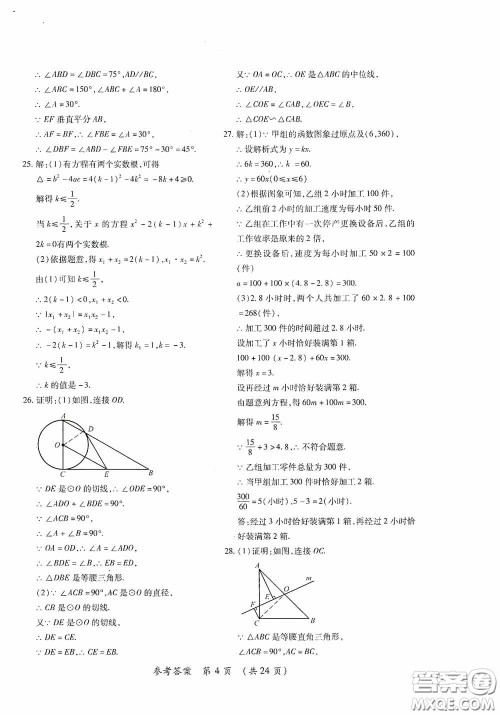 ∴ ∠ABD = ∠DBC = 75°, AD//BC,
∴ ∠ABC = 150°, ∠ABC + ∠A = 180°,
∴ ∠A = 30°.
∵ EF 垂直平分 AB,
∴ AF = BF, ∴ ∠FBE = ∠A = 30°,
∴ ∠DBF = ∠ABD − ∠FBE = 75° − 30° = 45°.
25. 解:(1)有方程有两个实数根,可得
△ = b² − 4ac = 4(k−1)² − 4k² = −8k + 4 ≥ 0.
解得 k ≤ 1/2.
当 k ≤ 1/2, 关于 x 的方程 x² − 2(k−1)x + k² +
2k = 0 有两个实数根.
(2)依据题意,得 x₁ + x₂ = 2(k−1), x₁·x₂ = k².
由(1)可知 k ≤ 1/2,
∴ 2(k−1) < 0, x₁ + x₂ < 0.
∵ |x₁ + x₂| = x₁x₂ − 1,
∴ −(x₁ + x₂) = x₁x₂ − 1,
∴ −2(k−1) = k² − 1, 解得 k₁ = 1, k = −3.
∵ k ≤ 1/2,
∴ k 的值是 −3.
26. 证明:(1)如图,连接 OD.
A
D
O
C
E
B
∵ DE 是⊙O 的切线,∴ ∠ODE = 90°,
∴ ∠ADO + ∠BDE = 90°,
∵ ∠ACB = 90°,
∴ ∠A + ∠B = 90°.
∵ OA = OD, ∴ ∠A = ∠ADO,
∴ ∠BDE = ∠B, ∴ EB = ED,
∴ △DBE 是等腰三角形.
(2)∵ ∠ACB = 90°, AC 是⊙O 的直径,
∴ CB 是⊙O 的切线.
又∵ DE 是⊙O 的切线,
∴ DE = CE.
∵ DE = EB, ∴ CE = EB.
又∵ OA = OC, ∴ OE 是△ABC 的中位线,
∴ OE//AB,
∴ ∠COE = ∠CAB, ∠OEC = ∠ABC,
∴ △COE∽△CAB.
27. 解:(1)∵ 甲组的函数图象过原点及(6,360),
∴ 设解析式为 y = kx.
∴ 6k = 360, ∴ k = 60.
∴ y = 60x(0≤x≤6)
(2)根据图象可知,乙组 2 小时加工 100 件,
∴ 乙组前 2 小时的加工速度为每小时 50 件.
∵ 乙组在工作中有一次停产更换设备后,乙组的
工作效率是原来的 2 倍,
∴ 更换设备后,速度为每小时加工 50×2 = 100
(件)
a = 100 + 100×(4.8−2.8) = 300.
(3)2.8 小时时,两个人共加工了 60×2.8 + 100
= 268(件),
∴ 加工 300 件的时间超过 2.8 小时.
设加工了 x 小时恰好装满第 1 箱.
100 + 100(x−2.8) + 60x = 300.
解得 x = 3.
设再经过 m 小时恰好装满第 2 箱.
由题意列方程,得 60m + 100m = 300.
解得 m = 15/8.
∵ 15/8 + 3 > 4.8, ∴ 不符合题意.
∵ 乙组加工零件总量为 300 件.
∴ 当甲组加工 300 件时恰好装满第 2 箱.
300/60 = 5(小时), 5−3 = 2(小时).
答:经过 3 小时恰好装满第 1 箱,再经过 2 小时恰
好装满第 2 箱.
28. (1)证明:如图,连接 OC.
A
m
E
O
F
C
B
∵ △ABC 是等腰直角三角形,
∠ACB = 90°, AC = BC,
参考答案 第 4 页 (共 24 页)